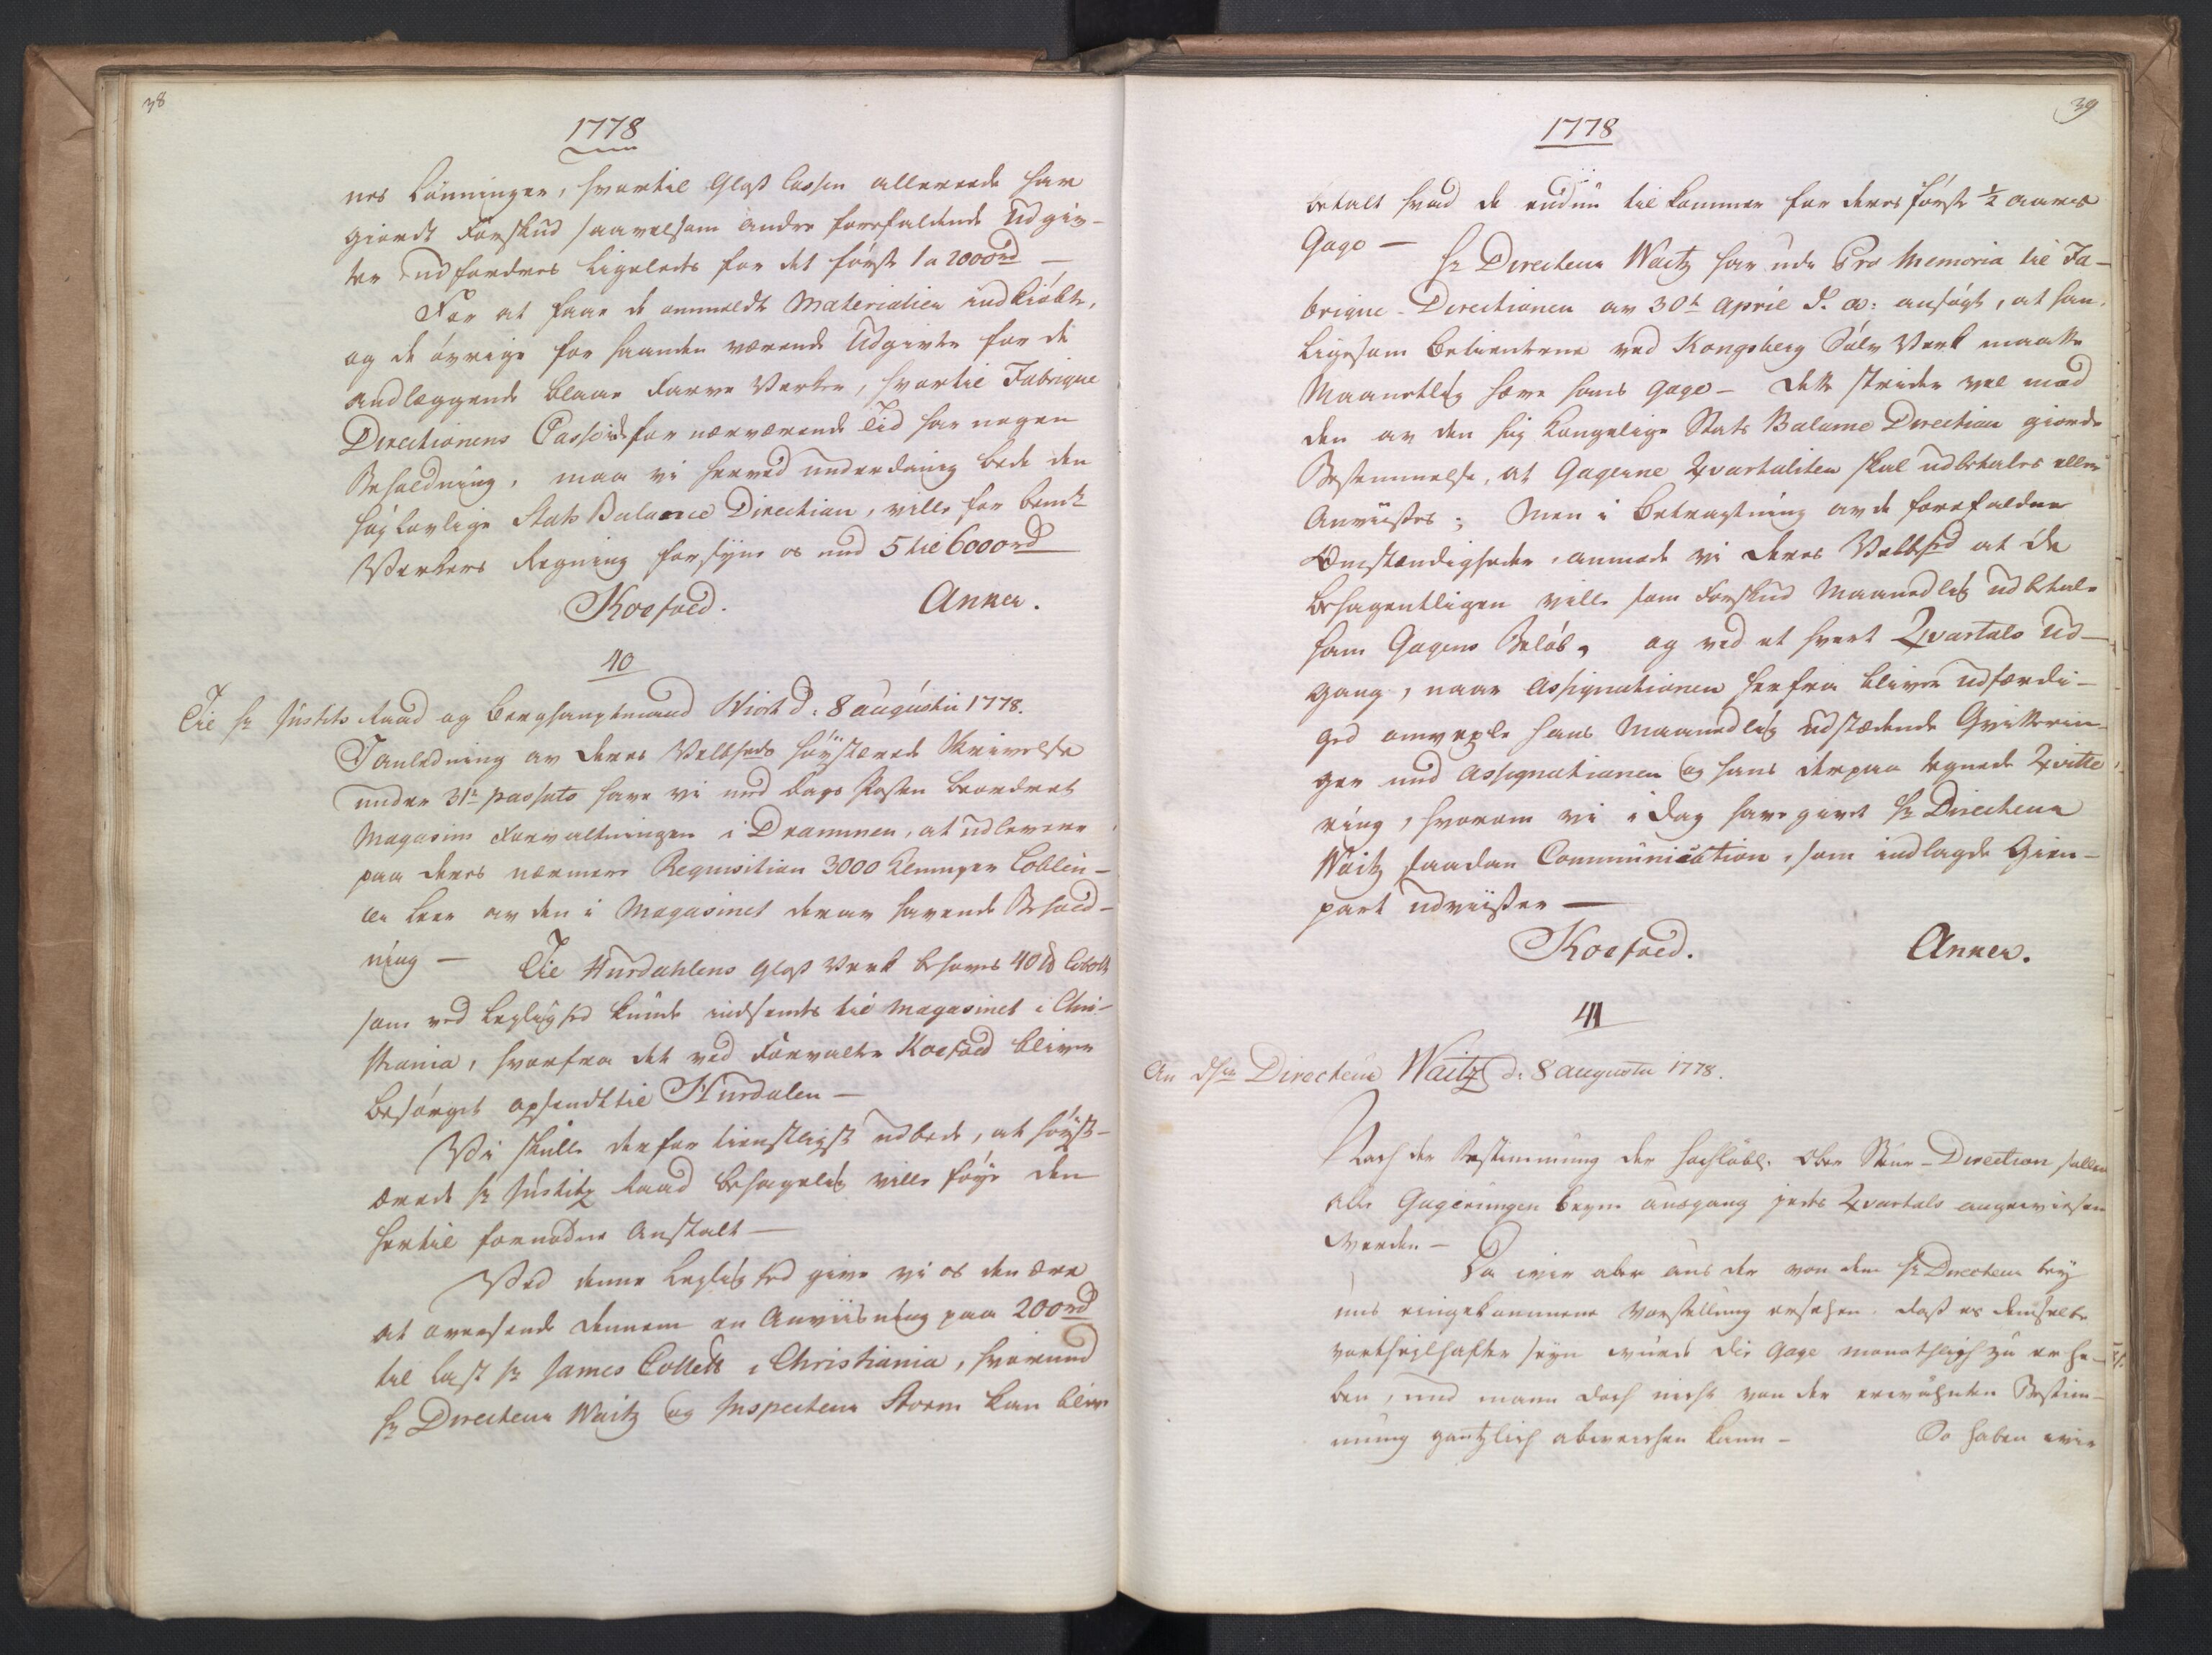 38
1778
nes Lønninger, hvortil Glas Cassen allereede har
giordt Forskud saavelsom andre forefaldende Udgiv-
ter udfordres ligeleds for det første 1 a 2000rd —
For at faae de anmeldte Materialier indkiøbte,
og de øvrige for haanden værende Udgivter for de
andlæggende blaae Farve Verker, hvortil Fabrique
Directionens Casse ei for nærværende Tid har nogen
Beholdning, maa vi herved underdanig bede den
høylovlige Stats Balance Direction, ville for bemte
Verkers Regning forsyne os med 5 til 6000rd
Koefoed. Anker.
40
Til Hr Justits Raad og Berghauptmand Hiort d. 8 augustii 1778.
I anledning av Deres Velbhrds høystærede Skrivelse
under 31te passato have vi med Dags Posten beordret
Magasins Forvaltningen i Drammen, at udlevere
paa Deres nærmere Requisition 3000 Klumper Coblen-
cer Leer av den i Magasinet derav havende Behold-
ning — Til Hurdahlens Glas Verk behøves 40 ℔ Cobolt
som ved Leylighed kunde indsendes til Magasinet i Chri-
stiania, hvorfra det ved Forvalter Koefoed bliver
besørget opsendt til Hurdalen —
Vi skulle derfor tienstligst udbede, at høyst-
ærede Hr Justitz Raad behagelig ville føye den
hertil fornødne Anstalt —
Ved denne Leylighed give vi os den ære
at oversende dennem en Anviisning paa 200rd
til Last Hr James Collett i Christiania, hvormed
Hr Directeur Waitz og Inspecteur Storm kan blive
39
1778
betalt hvad de endnu tilkommer for deres første ½ aars
Gage — Hr Directeur Waitz har udi Pro Memoria til Fa-
brique-Directionen av 30te April d. a: ansøgt, at han,
ligesom Betienterne ved Kongsberg Sølv Verk maatte
Maanetlig hæve hans Gage — Dette strider vel mod
den av den høy Kongelige Stats Balance Direction giorde
Bestemmelse, at Gagerne Qvartaliter skal udbetales eller
Anviises; Men i Betragtning av de forefaldne
Omstændigheder, anmode vi Deres Velbhrd at De
behagentligen ville som Forskud Maanedlig udbetale
ham Gagens Beløb, og ved et hvert Qvartals Ud-
gang, naar Assignationen herfra bliver udfærdi-
get omvexle hans Maanedlig udstædende Qvitterin-
ger med Assignationen og hans derpaa tegnede Qvitte-
ring, hvorom vi i Dag have givet Hr Directeur
Waitz saadan Communication, som indlagde Gien-
part udviiser —
Koefoed. Anker.
41
An dHrn Directeur Waitz d: 8 augusti 1778.
Nach der Bestimmung der hochlöbl. Ober Steur-Direction sollen
alle Gagerungen beym ausgang jedes Qvartals angewiesen
werden —
Da wir aber aus der von dem Hr Directeur bey
uns eingekommene Vorstellung ersehen, daß es demselben
vortheilhafter seyn würde die Gage monathlich zu erhe-
ben, und mann doch nicht von der erwähnten Bestim-
mung gäntzlich abweichen kann — So haben wir